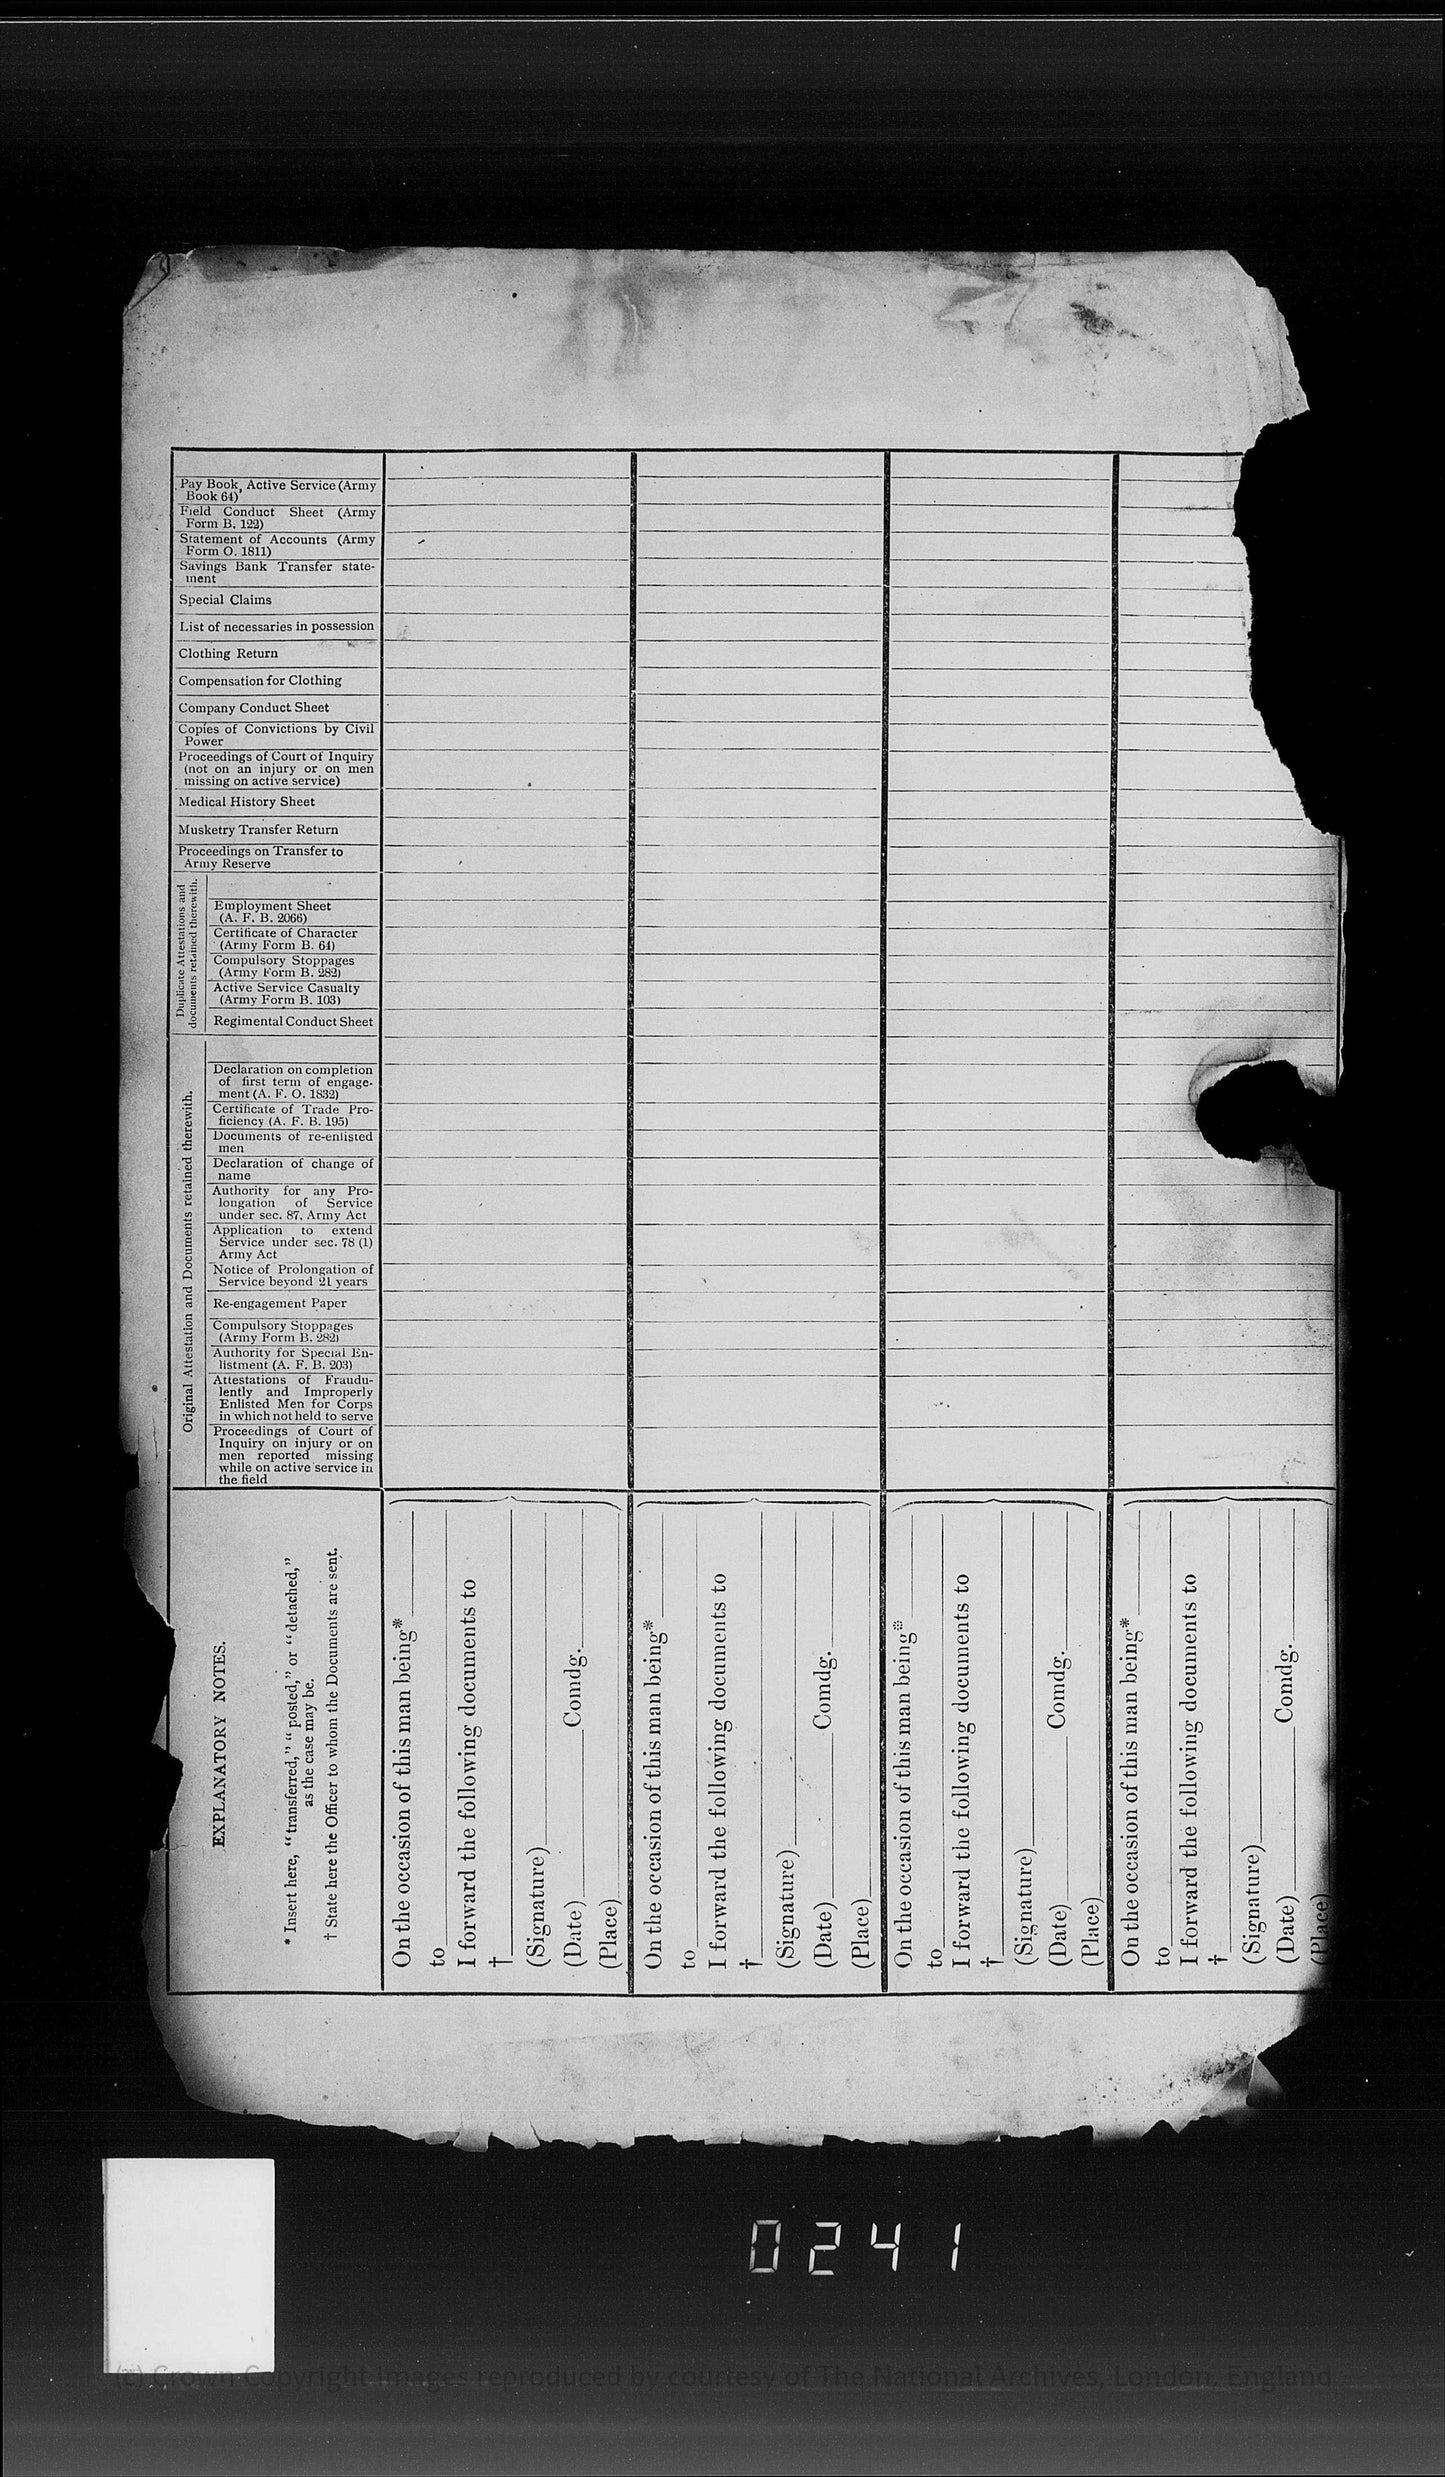 Pay Book, Active Service (Army
Book 64)
Field Conduct Sheet (Army
Form B. 122)
Statement of Accounts (Army
Form O. 1811)
Savings Bank Transfer state-
ment
Special Claims
List of necessaries in possession
Clothing Return
Compensation for Clothing
Company Conduct Sheet
Copies of Convictions by Civil
Power
Proceedings of Court of Inquiry
(not on an injury or on men
missing on active service)
Medical History Sheet
Musketry Transfer Return
Proceedings on Transfer to
Army Reserve
Duplicate Attestations and
documents retained therewith.
Employment Sheet
(A. F. B. 2066)
Certificate of Character
(Army Form B. 64)
Compulsory Stoppages
(Army Form B. 282)
Active Service Casualty
(Army Form B. 103)
Regimental Conduct Sheet
Original Attestation and Documents retained therewith.
Declaration on completion
of first term of engage-
ment (A. F. O. 1832)
Certificate of Trade Pro-
ficiency (A. F. B. 195)
Documents of re-enlisted
men
Declaration of change of
name
Authority for any Pro-
longation of Service
under sec. 87, Army Act
Application to extend
Service under sec. 78 (1)
Army Act
Notice of Prolongation of
Service beyond 21 years
Re-engagement Paper
Compulsory Stoppages
(Army Form B. 282)
Authority for Special En-
listment (A. F. B. 203)
Attestations of Fraudu-
lently and Improperly
Enlisted Men for Corps
in which not held to serve
Proceedings of Court of
Inquiry on injury or on
men reported missing
while on active service in
the field
EXPLANATORY NOTES.
* Insert here, "transferred," "posted," or "detached,"
as the case may be.
† State here the Officer to whom the Documents are sent.
On the occasion of this man being*
to
I forward the following documents to
†
(Signature)
(Date) Comdg.
(Place)
On the occasion of this man being*
to
I forward the following documents to
†
(Signature)
(Date) Comdg.
(Place)
On the occasion of this man being*
to
I forward the following documents to
†
(Signature)
(Date) Comdg.
(Place)
On the occasion of this man being*
to
I forward the following documents to
†
(Signature)
(Date) Comdg.
(Place)
0241
(c) Crown Copyright Images reproduced by courtesy of The National Archives, London, England